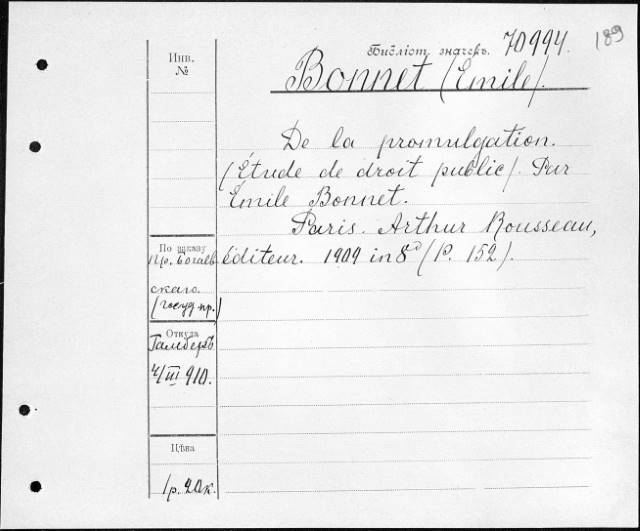 189
Библіот. значекъ. 70994.
Инв.
№
Bonnet (Emile).
De la promulgation.
(Étude de droit public). Par
Émile Bonnet.
Paris. Arthur Rousseau,
éditeur. 1909 in 8° (P. 152).
По заказу
пр. Богаев
скаго.
(госуд. пр.)
Откуда
Гамберъ
4/III 910.
Цѣна
1 р. 20 к.